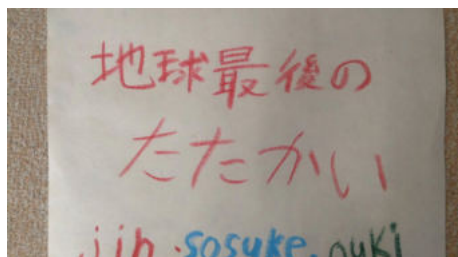 地球最後の
たたかい
jin.sosuke.ouki